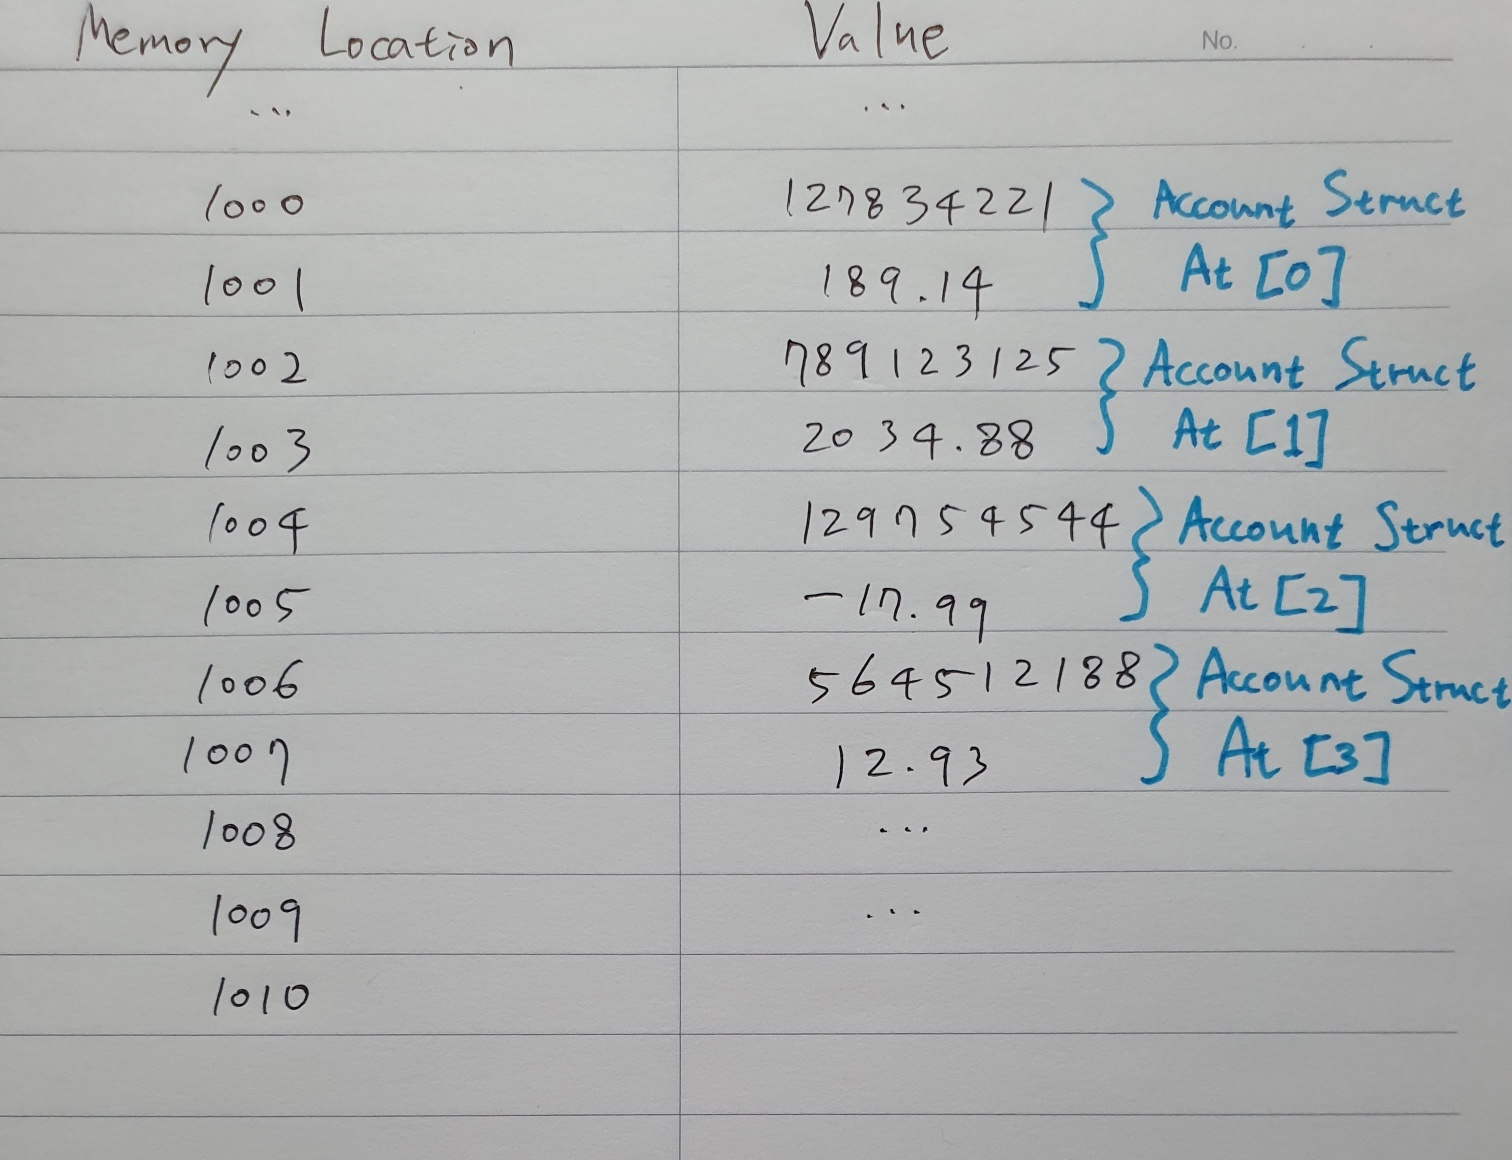 Memory Location Value No.
... ...
1000 127834221 } Account Struct
1001 189.14 At [0]
1002 789123125 } Account Struct
1003 2034.88 At [1]
1004 129754544 } Account Struct
1005 -17.99 At [2]
1006 564512188 } Account Struct
1007 12.93 At [3]
1008 ...
1009 ...
1010